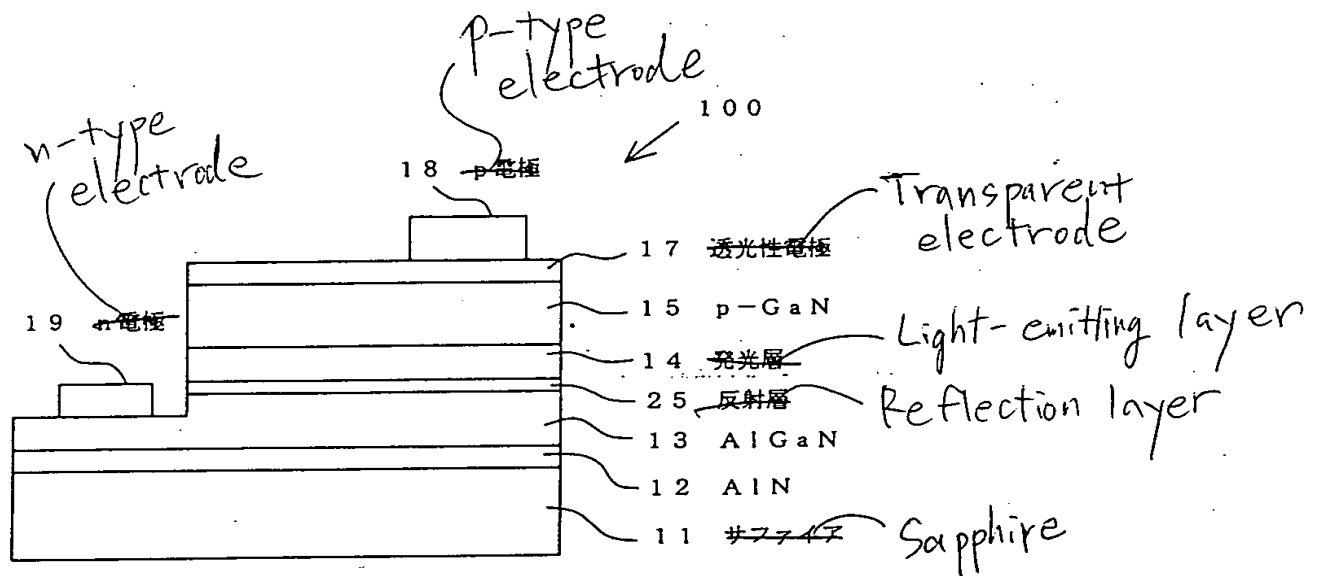 p-type
electrode
100
n-type
electrode
18 p電極
Transparent
electrode
17 透光性電極
15 p-GaN
19 n電極
Light-emitting layer
14 発光層
25 反射層
Reflection layer
13 AlGaN
12 AlN
11 サファイア
Sapphire